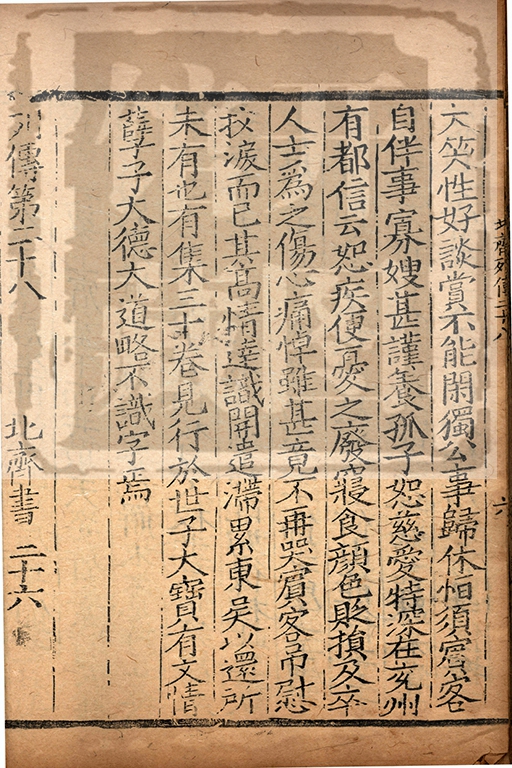 大笑性好談賞不能閑獨公事歸休恒須賓客
自伴事寡嫂甚謹養孤子恕慈愛特深在兗州
有都信云恕疾便憂之廢寢食顏色貶損及卒
人士為之傷心痛悼雖甚竟不再哭賓客弔慰
抆淚而已其高情達識開遣滯累東吳以還所
未有也有集三十卷見行於世子大寶有文情
孽子大德大道略不識字焉
列傳第二十八 北齊書 三十六
北齊列傳二十八
六